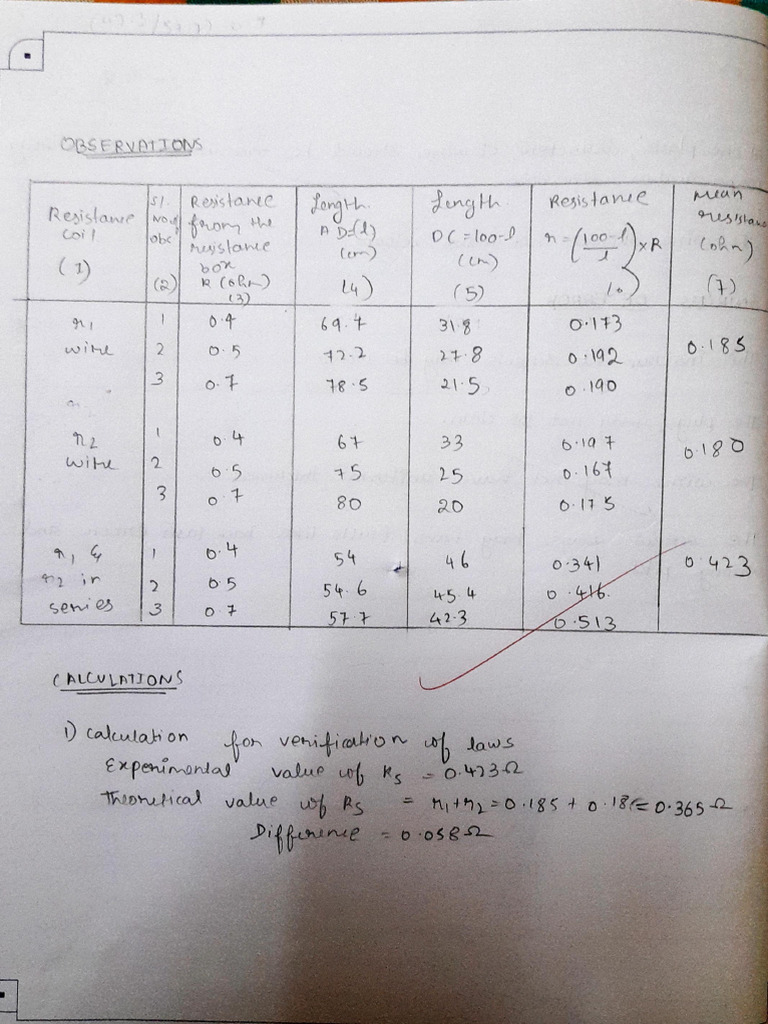 OBSERVATIONS
Resistance coil (1) | Sl. No. of obs. (2) | Resistance from the resistance box R (ohm) (3) | Length AD=(l) (cm) (4) | Length DC=100-l (cm) (5) | Resistance r=(100-l/l)×R | Mean resistance (ohm) (7)
r1 wire | 1 | 0.4 | 69.7 | 31.8 | 0.173 | 0.185
2 | 0.5 | 72.2 | 27.8 | 0.192
3 | 0.7 | 78.5 | 21.5 | 0.190
r2 wire | 1 | 0.4 | 67 | 33 | 0.197 | 0.180
2 | 0.5 | 75 | 25 | 0.167
3 | 0.7 | 80 | 20 | 0.175
r1 & r2 in series | 1 | 0.4 | 54 | 46 | 0.341 | 0.423
2 | 0.5 | 54.6 | 45.4 | 0.416.
3 | 0.7 | 57.7 | 42.3 | 0.513
CALCULATIONS
1) Calculation for verification of laws
Experimental value of Rs = 0.423Ω
Theoretical value of Rs = r1+r2=0.185+0.18=0.365Ω
Difference = 0.058Ω